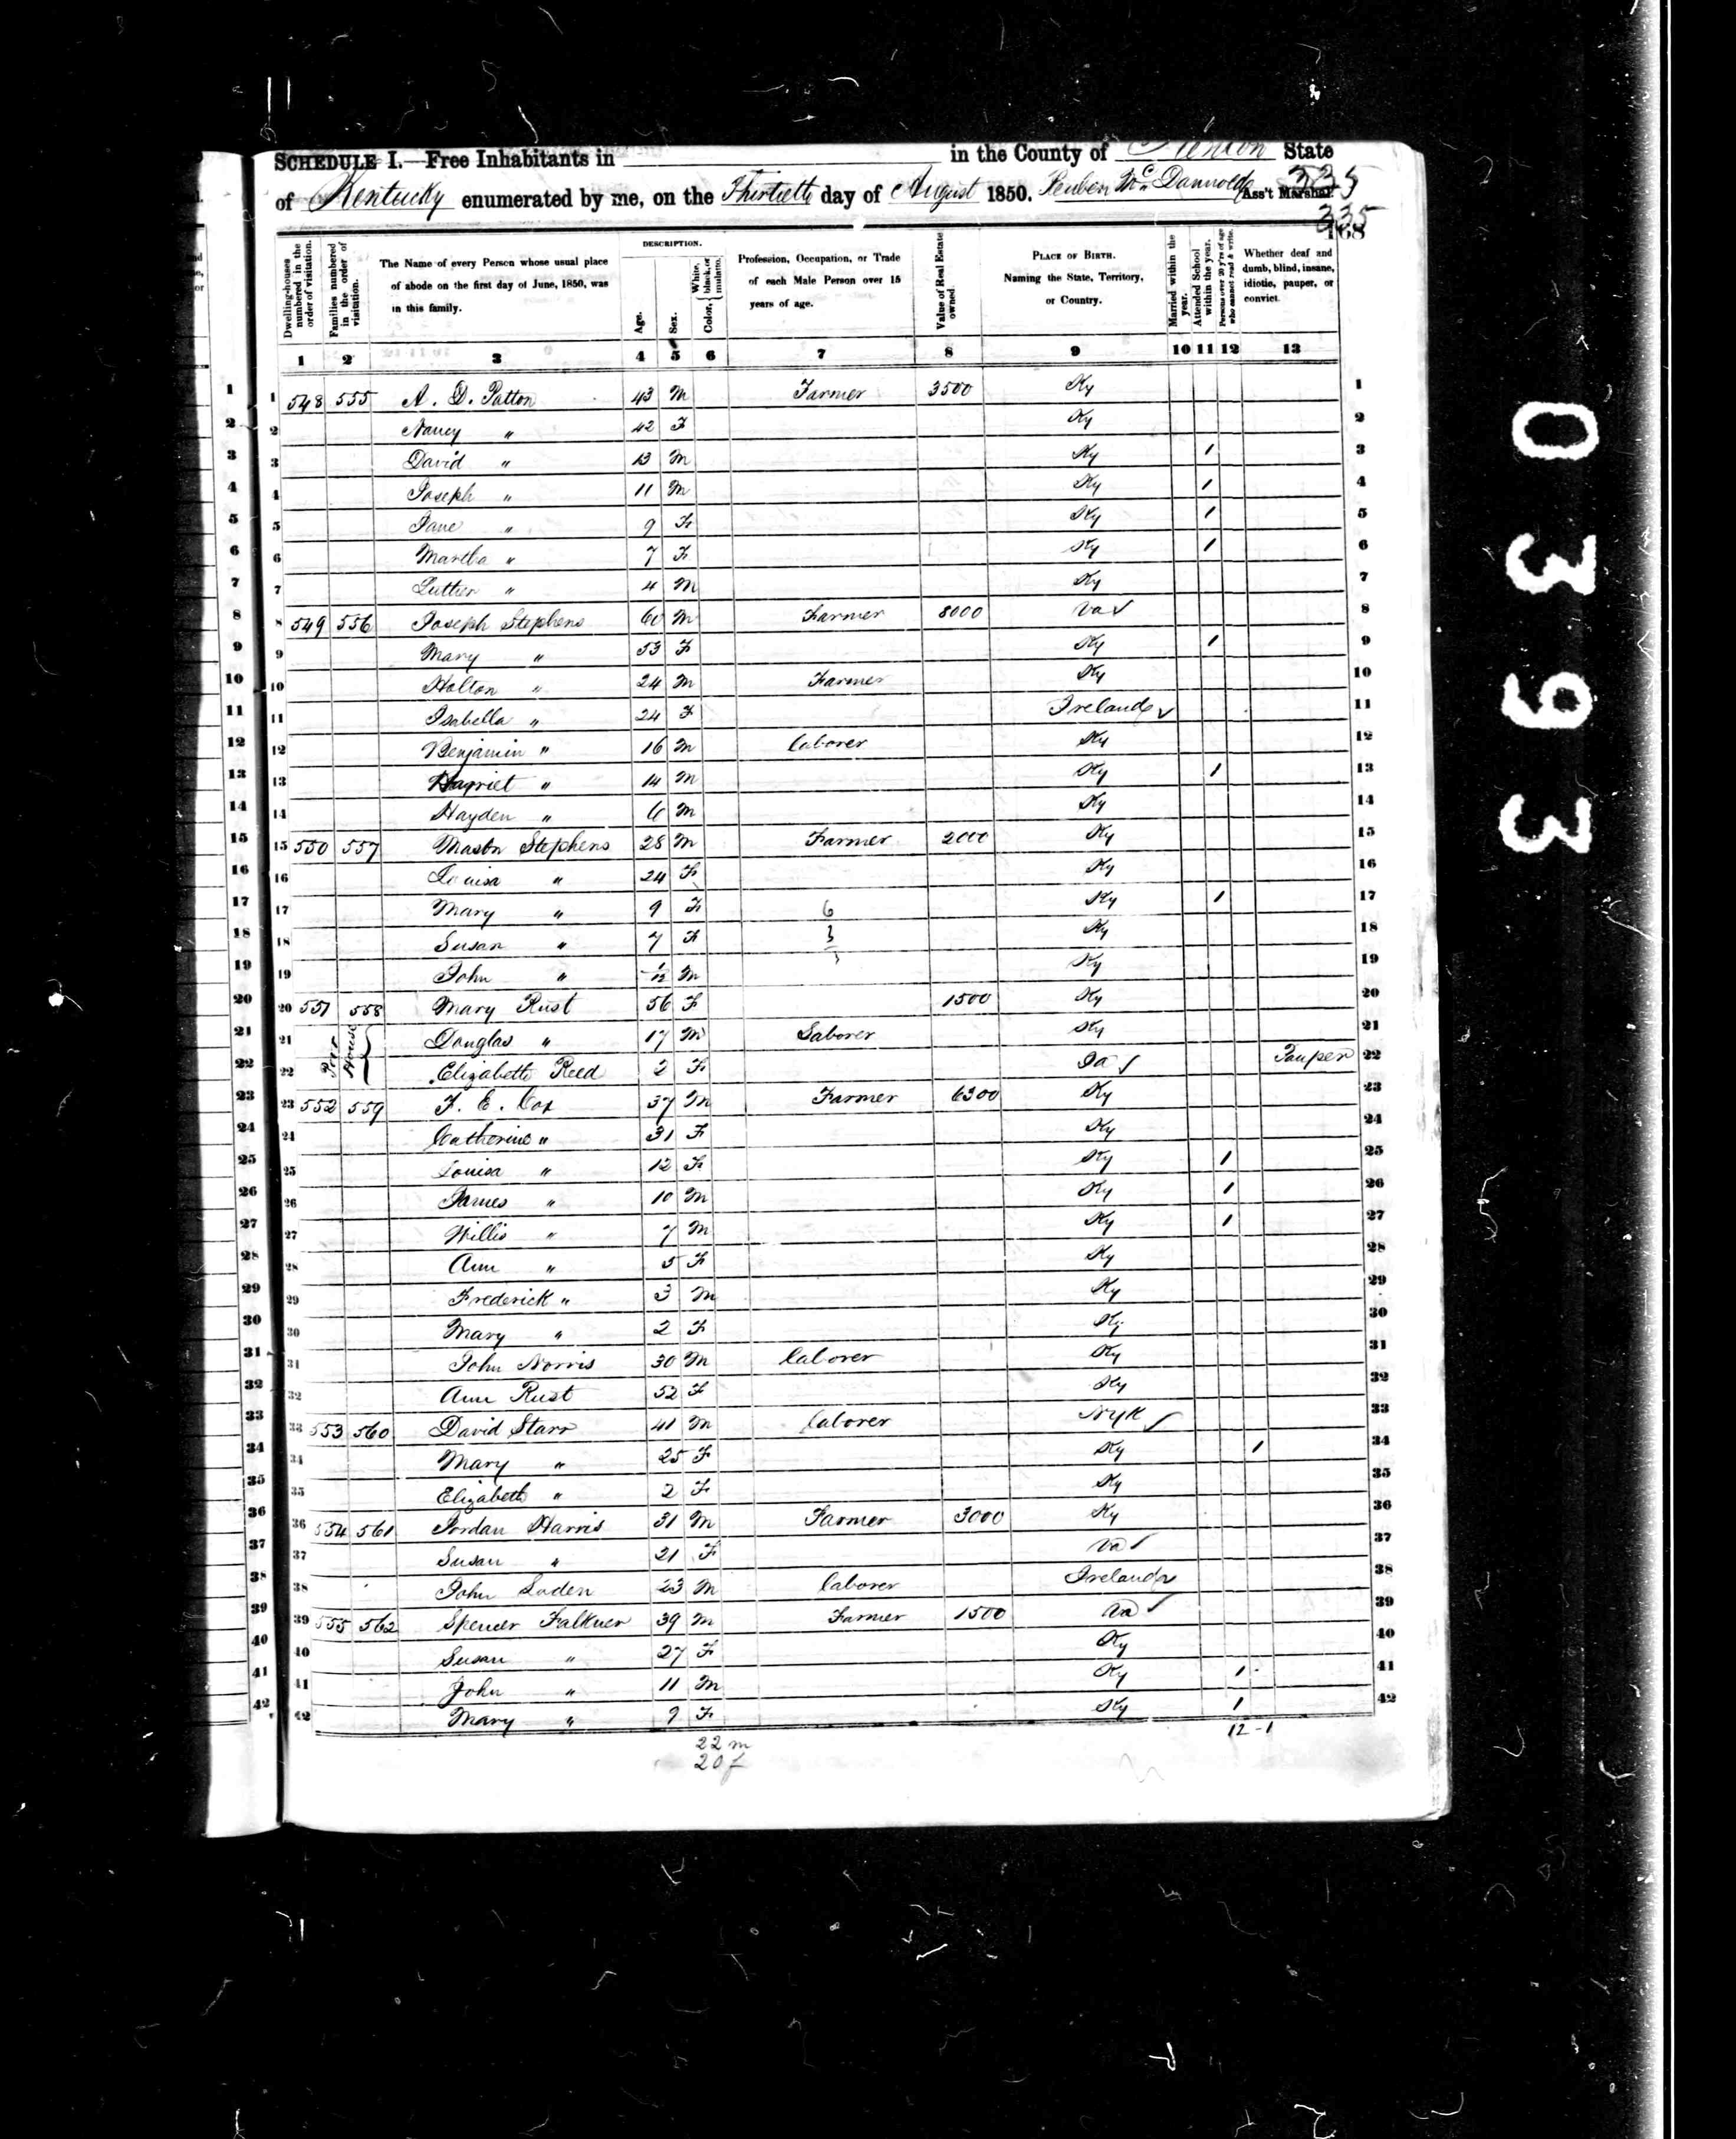 SCHEDULE I.—Free Inhabitants in in the County of Kenton State
of Kentucky enumerated by me, on the Thirtieth day of August 1850. Reuben Mc Dannold Ass't Marshal.
335
335
168
Dwelling-houses numbered in the order of visitation.
Families numbered in the order of visitation.
The Name of every Person whose usual place of abode on the first day of June, 1850, was in this family.
DESCRIPTION.
Age.
Sex.
Color, { White, black, or mulatto.
Profession, Occupation, or Trade of each Male Person over 15 years of age.
Value of Real Estate owned.
PLACE OF BIRTH. Naming the State, Territory, or Country.
Married within the year.
Attended School within the year.
Persons over 20 y'rs of age who cannot read & write.
Whether deaf and dumb, blind, insane, idiotic, pauper, or convict.
1 2 3 4 5 6 7 8 9 10 11 12 13
1 548 555 A. D. Patton 43 M Farmer 3500 Ky 1
2 Nancy " 42 F Ky 2
3 David " 13 M Ky / 3
4 Joseph " 11 M Ky / 4
5 Jane " 9 F Ky / 5
6 Martha " 7 F Ky / 6
7 Luther " 4 M Ky 7
8 549 556 Joseph Stephens 60 M Farmer 8000 Va ✓ 8
9 Mary " 53 F Ky / 9
10 Holton " 24 M Farmer Ky 10
11 Isabella " 24 F Ireland ✓ 11
12 Benjamin " 16 M laborer Ky 12
13 Harriet " 14 M Ky / 13
14 Hayden " 6 M Ky 14
15 550 557 Mason Stephens 28 M Farmer 2000 Ky 15
16 Louisa " 24 F Ky 16
17 Mary " 9 F 6 Ky / 17
18 Susan " 7 F 3 Ky 18
19 John " 1/12 M Ky 19
20 551 558 Mary Rust 56 F 1500 Ky 20
21 Poor House Douglas " 17 M Laborer Ky 21
22 Elizabeth Reed 2 F Ia ✓ Pauper 22
23 552 559 F. E. Cox 37 M Farmer 6300 Ky 23
24 Catherine " 31 F Ky 24
25 Louisa " 12 F Ky / 25
26 James " 10 M Ky / 26
27 Willis " 7 M Ky / 27
28 Ann " 5 F Ky 28
29 Frederick " 3 M Ky 29
30 Mary " 2 F Ky 30
31 John Norris 30 M laborer Ky 31
32 Ann Rust 52 F Ky 32
33 553 560 David Starr 41 M laborer NYk ✓ 33
34 Mary " 25 F Ky / 34
35 Elizabeth " 2 F Ky 35
36 554 561 Jordan Harris 31 M Farmer 3000 Ky 36
37 Susan " 21 F Va ✓ 37
38 John Loden 23 M laborer Ireland ✓ 38
39 555 562 Spencer Falkner 39 M Farmer 1500 Va ✓ 39
40 Susan " 27 F Ky 40
41 John " 11 M Ky / 41
42 Mary " 9 F Ky / 42
12 - 1
22 m
20 f
0393